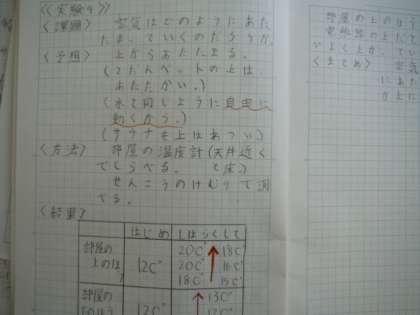 《実験4》
〈課題〉 空気はどのようにあた
たまっていくのだろうか。
〈予想〉 上からあたたまる。
(2だんベットの上は
あたたかい。)
(水と同じように自由に
動くから。)
(サウナも上はあつい)
〈方法〉 部屋の温度計(天井近く
でしらべる。 と床)
せんこうのけむりで調
べる。
〈結果〉
はじめ しばらくして
部屋の 20C° 18C°
上のほう 12C° 20C° 16C°
18C° 15C°
部屋の 13C°
12C° 12C°
部屋の上のほう
電熱器の上だ
よく上がって
〈まとめ〉 空気
にあた
が上